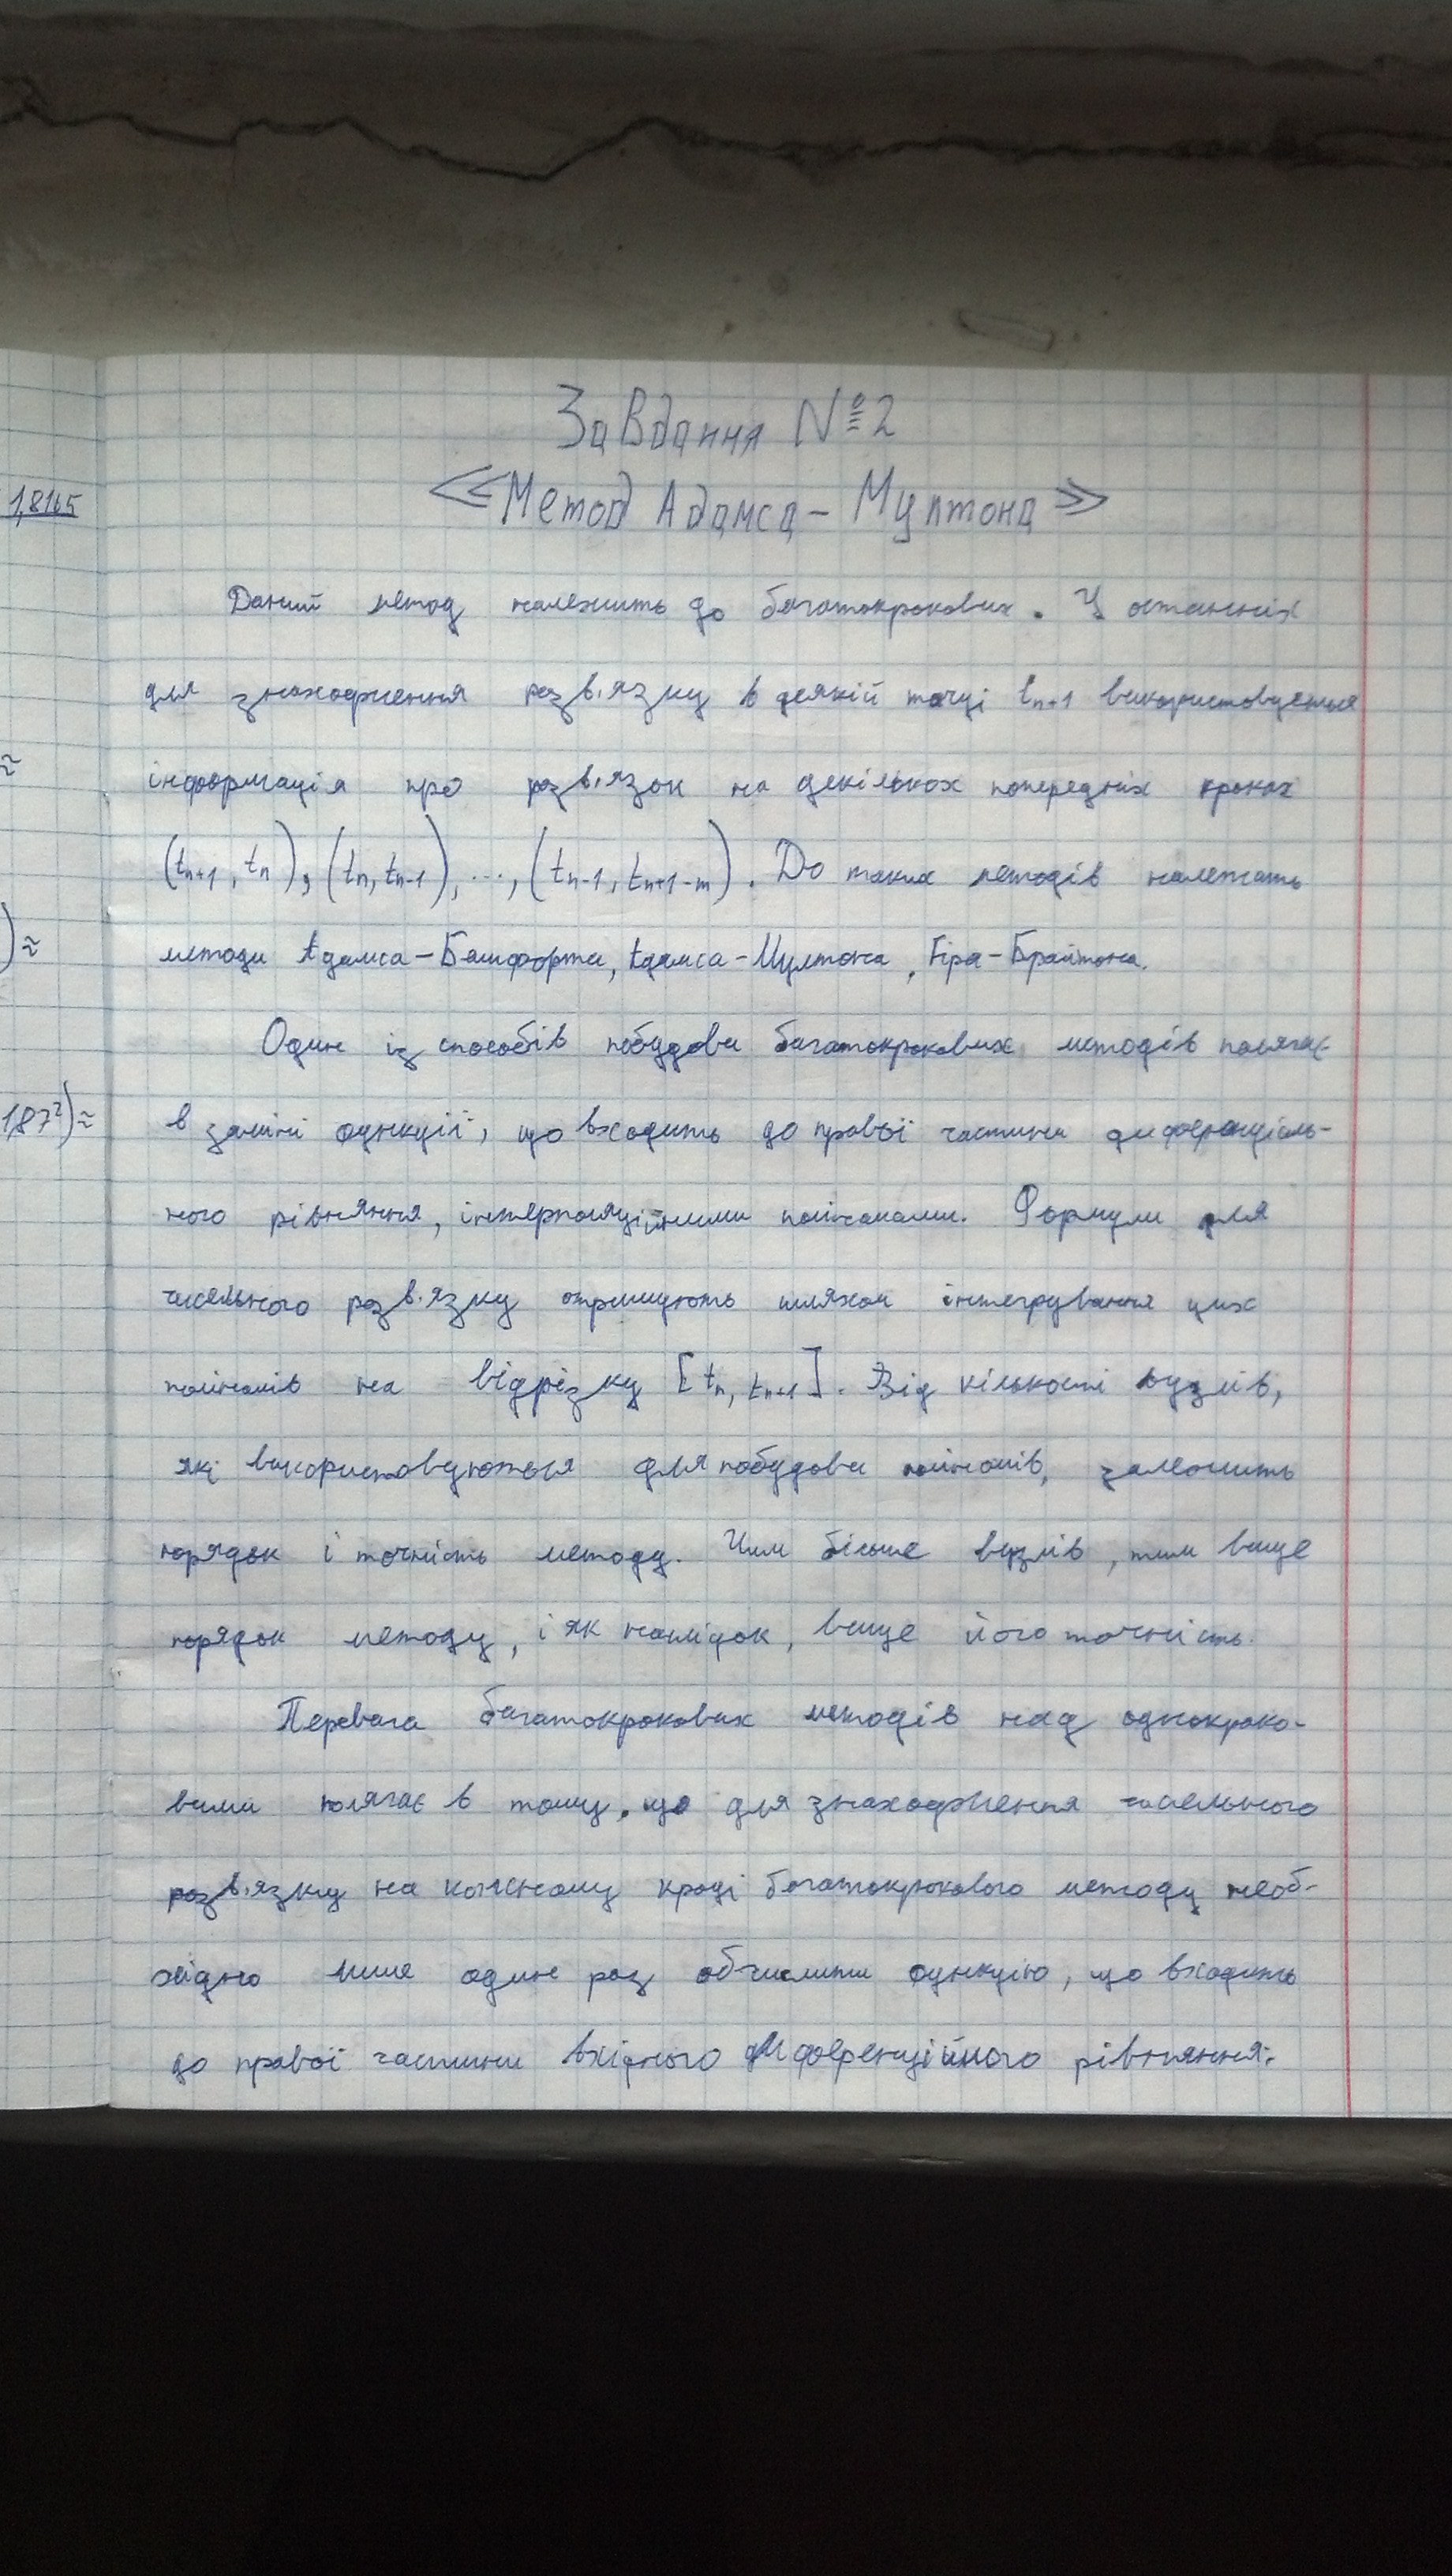 1,8165
≈
)≈
1,87²)≈
Завдання №2
≪Метод Адамса – Мултона≫
Даний метод належить до багатокрокових. У останніх
для знаходження розв'язку в деякій точці tn+1 використовується
інформація про розв'язок на декількох попередніх кроках
(tn+1, tn), (tn, tn-1), ..., (tn-1, tn+1-m). До таких методів належать
методи Адамса – Башфорта, Адамса – Мултона, Гіра – Брайтона.
Один із способів побудови багатокрокових методів полягає
в заміні функції, що входить до правої частини диференціаль-
ного рівняння, інтерполяційними поліномами. Формули для
чисельного розв'язку отримують шляхом інтегрування цих
поліномів на відрізку [tn, tn+1]. Від кількості вузлів,
які використовуються для побудови поліномів, залежить
порядок і точність методу. Чим більше вузлів, тим вище
порядок методу, і як наслідок, вище його точність.
Перевага багатокрокових методів над однокроко-
вими полягає в тому, що для знаходження чисельного
розв'язку на кожному кроці багатокрокового методу необ-
хідно лише один раз обчислити функцію, що входить
до правої частини вхідного диференційного рівняння.